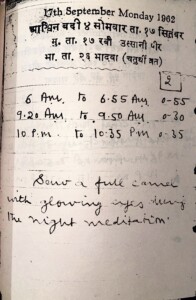 17th September Monday 1962
आश्विन वदी ४ सोमवार ता. १७ सितंबर
मु. ता. १७ रबी उस्सानी पीर
मा. ता. २६ भादवा (चतुर्थी व्रत)
2
6 A.M. to 6.55 A.M 0-55
9.20 A.M. to 9.50 A.M. 0-30
10 P.M. to 10:35 P.M 0.35
Saw a full camel
with glowing eyes during
the night meditation.